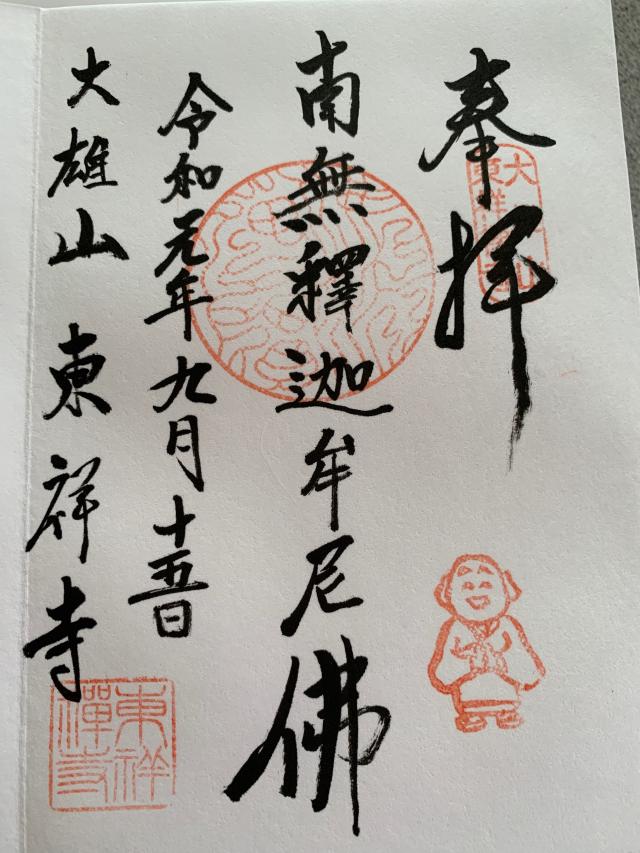 奉拝
南無釋迦牟尼佛
令和元年九月十五日
大雄山東祥寺
東祥
禪寺